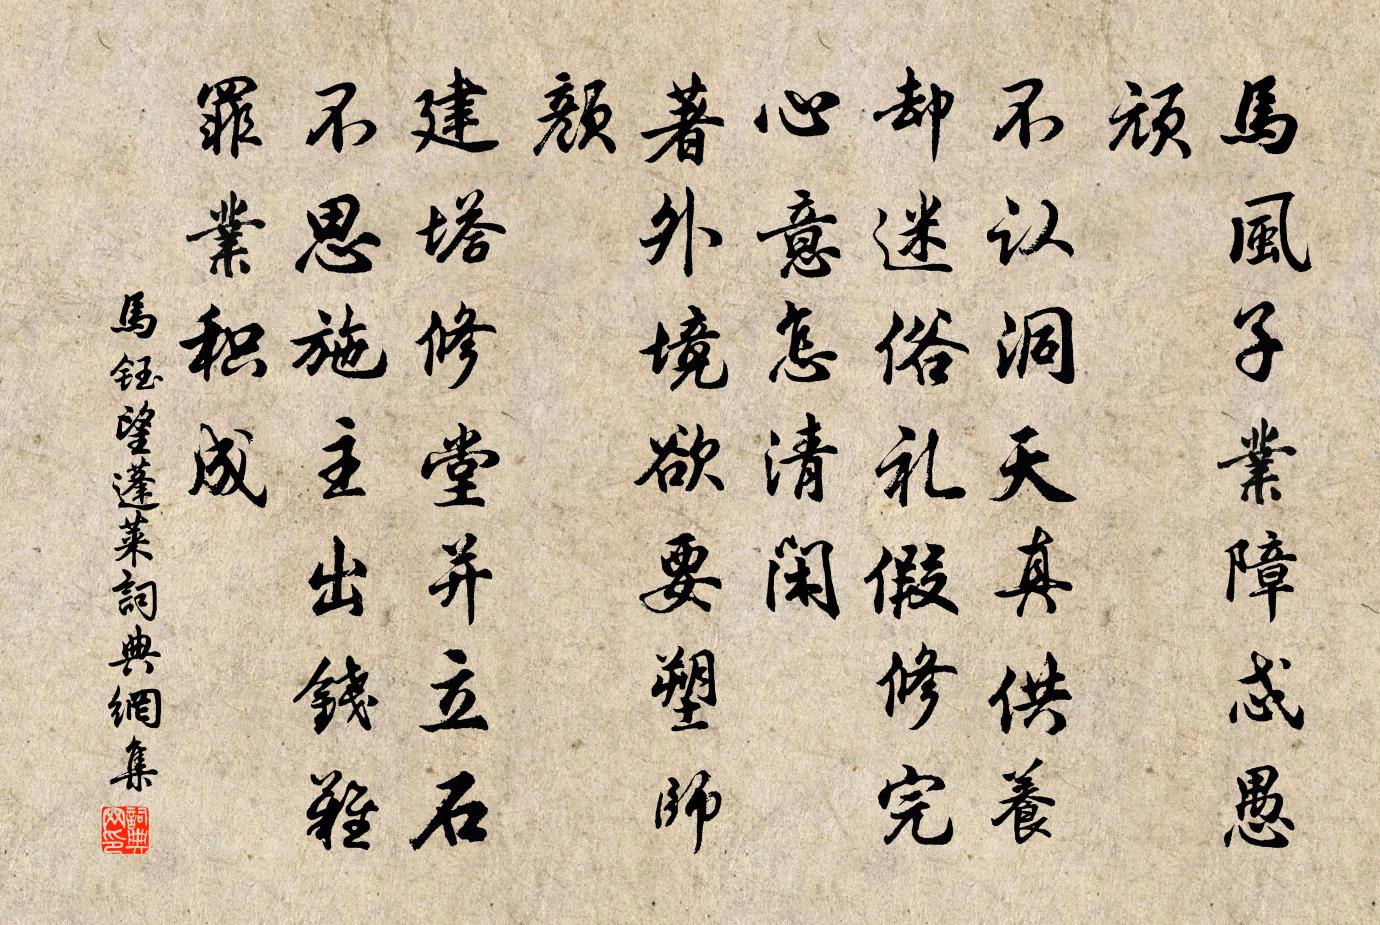 馬風子業障忒愚
頑
不认洞天真供養
却迷俗礼假修完
心意怎清閑
著外境欲要塑師
顏
建塔修堂并立石
不思施主出錢難
罪業积成
馬鈺望蓬萊詞典網集
詞典网印